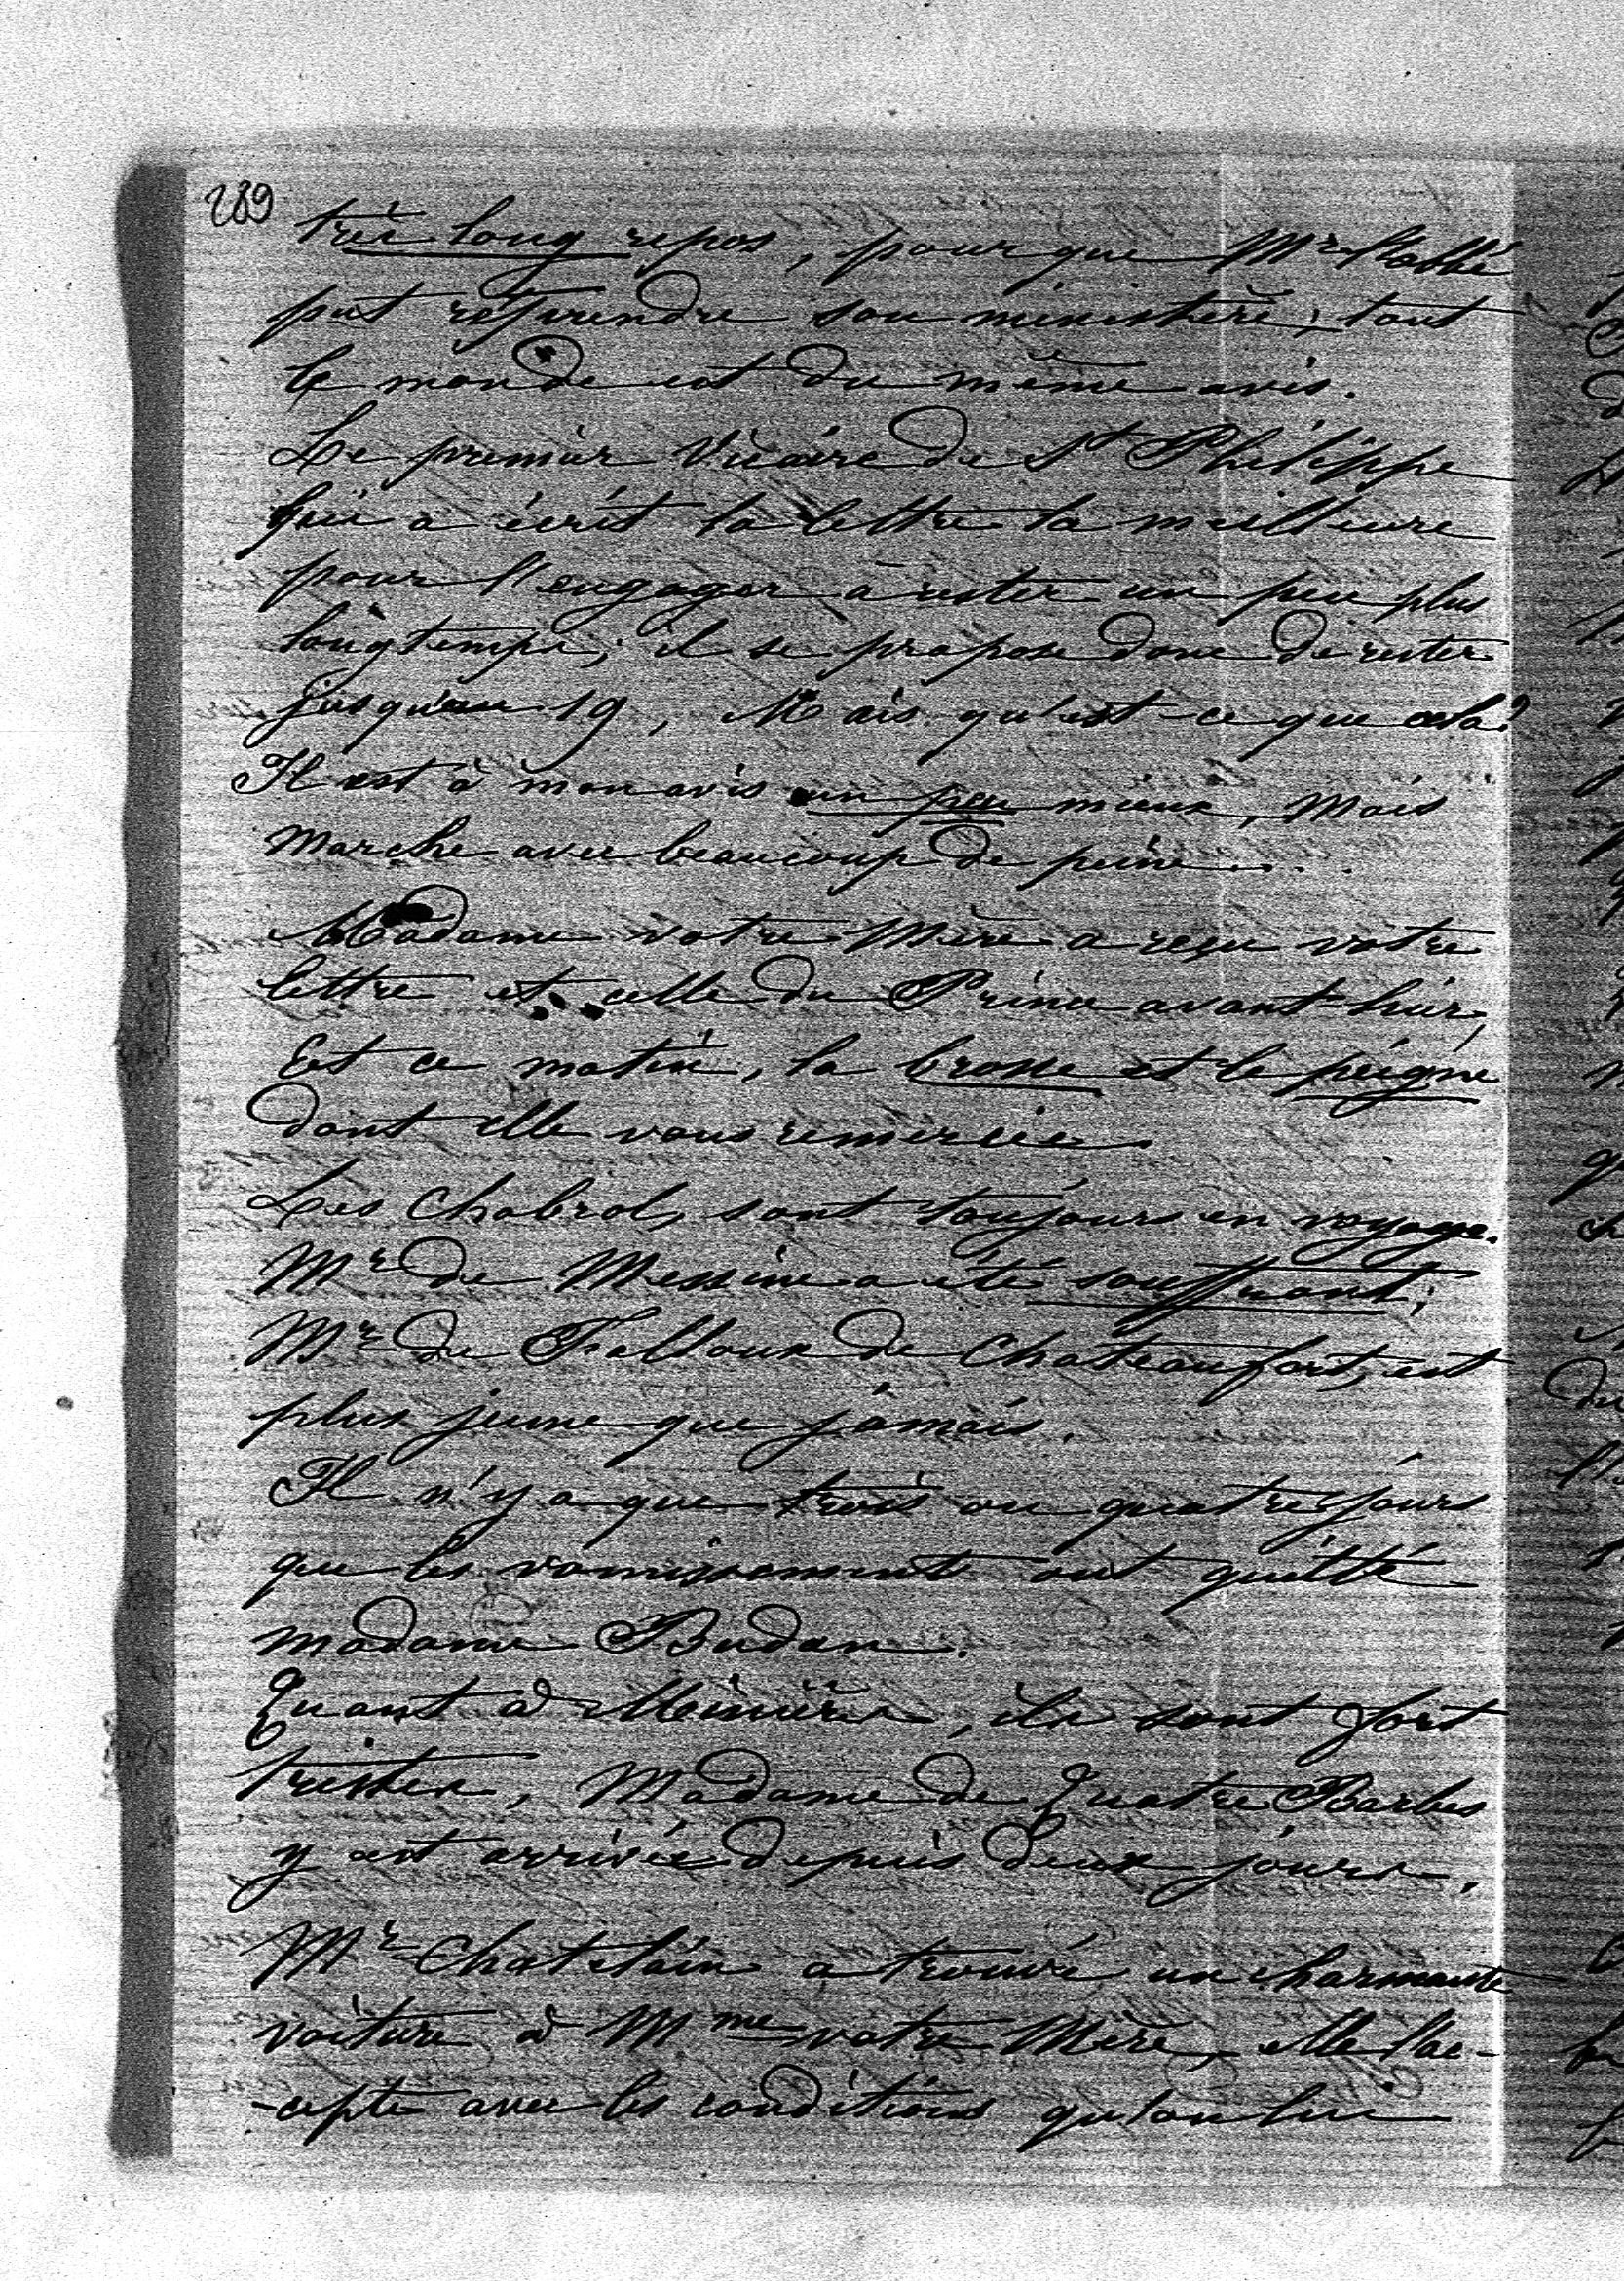 289
très long repos, pour que Mr l'abbé
put reprendre son ministère; tout
le monde est du même avis.
Le premier Vicaire de St Philippe
lui a écrit la lettre la meilleure
pour l'engager à rester un peu plus
longtemps; il se propose donc de rester
jusqu'au 19, Mais qu'est-ce que cela?
Il est à mon avis un peu mieux, mais
marche avec beaucoup de peine...
Madame votre Mère a reçu votre
lettre et celle du Prince avant-hier,
Et ce matin, la brosse et le peigne
dont elle vous remercie.
Les Chabrol, sont toujours en voyage.
Mr de Messine a été souffrant;
Mr de Falloux de Chateaufort, est
plus jeune que jamais.
Il n'y a que trois ou quatre jours
que les vomissements ont quitté
madame Budan.
Quant à , ils sont fort
tristes, Madame de Quatre Barbes
y est arrivée depuis deux jours.
Mr Chatelain a trouvé un charmante
voiture à Mme votre Mère, elle l'ac-
-cepte avec les conditions qu'on lui